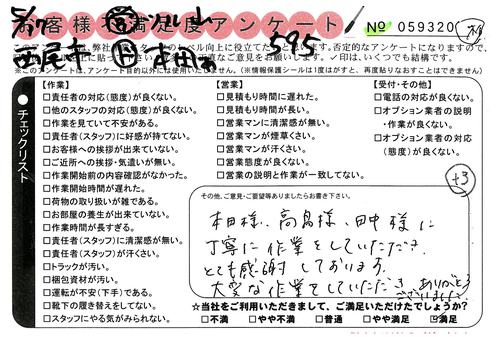 お客様満足度アンケート
№ 059320
5/17
595
本田
※このアンケートは、アンケート目的以外には使用いたしません。(※情報保護シールは1度はがすと、再度貼りなおすことはできません)
チェックリスト
【作業】
□責任者の対応(態度)が良くない。
□他のスタッフの対応(態度)が良くない。
□作業を見ていて不安がある。
□責任者(スタッフ)に好感が持てない。
□お客様への挨拶が出来ていない。
□ご近所への挨拶・気遣いが無い。
□作業開始前の内容確認がなかった。
□作業開始時間が遅れた。
□荷物の取り扱いが雑である。
□お部屋の養生が出来ていない。
□作業時間が長すぎる。
□責任者(スタッフ)に清潔感が無い。
□責任者(スタッフ)が汗くさい。
□トラックが汚い。
□梱包資材が汚い。
□運転が不安(下手)である。
□靴下の履き替えをしてない。
□スタッフにやる気がみられない。
【営業】
□見積もり時間に遅れた。
□見積もり時間が長い。
□営業マンに清潔感が無い。
□営業マンが煙草くさい。
□営業マンが汗くさい。
□営業態度が良くない。
□営業の説明と作業が一致してない。
【受付・その他】
□電話の対応が良くない。
□オプション業者の説明
・作業が良くない。
□オプション業者の対応
(態度)が良くない。
+3
その他、ご意見・ご要望等ありましたらお書き下さい。
本田様、高島様、田中様に
丁寧に作業をしていただき
とても感謝しております。
大変な作業をしていただき ありがとう
ございました。
☆当社をご利用いただきまして、ご満足いただけたでしょうか?
□不満 □やや不満 □普通 □やや満足 □満足